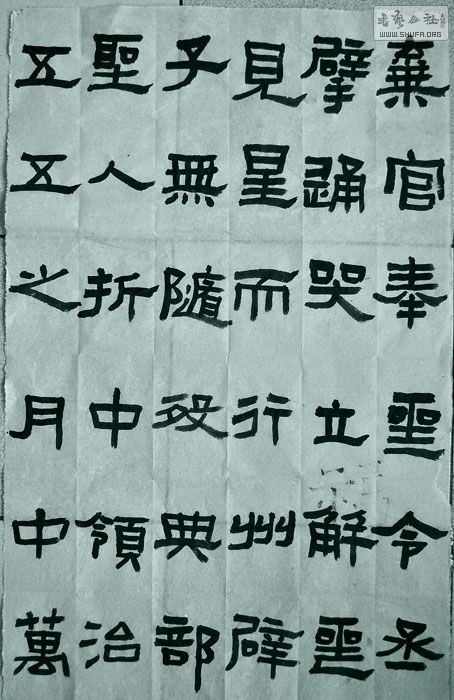 書藝公社
WWW.SHUFA.ORG
棄官奉喪令丞
擘踊哭立解喪
見星而行州辟
子無隨歿典部
聖人折中領治
五五之月中萬